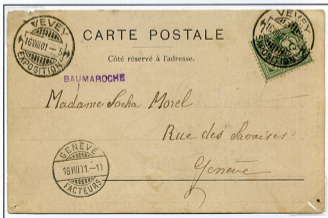 VEVEY
16 VIII 01 - 5
EXPOSITION
CARTE POSTALE
VEVEY
Côté réservé à l'adresse.
BAUMAROCHE
Madame Socha Morel
Rue des Savoises
Genève
GENÈVE
16 VIII 01 - 11
FACTEURS